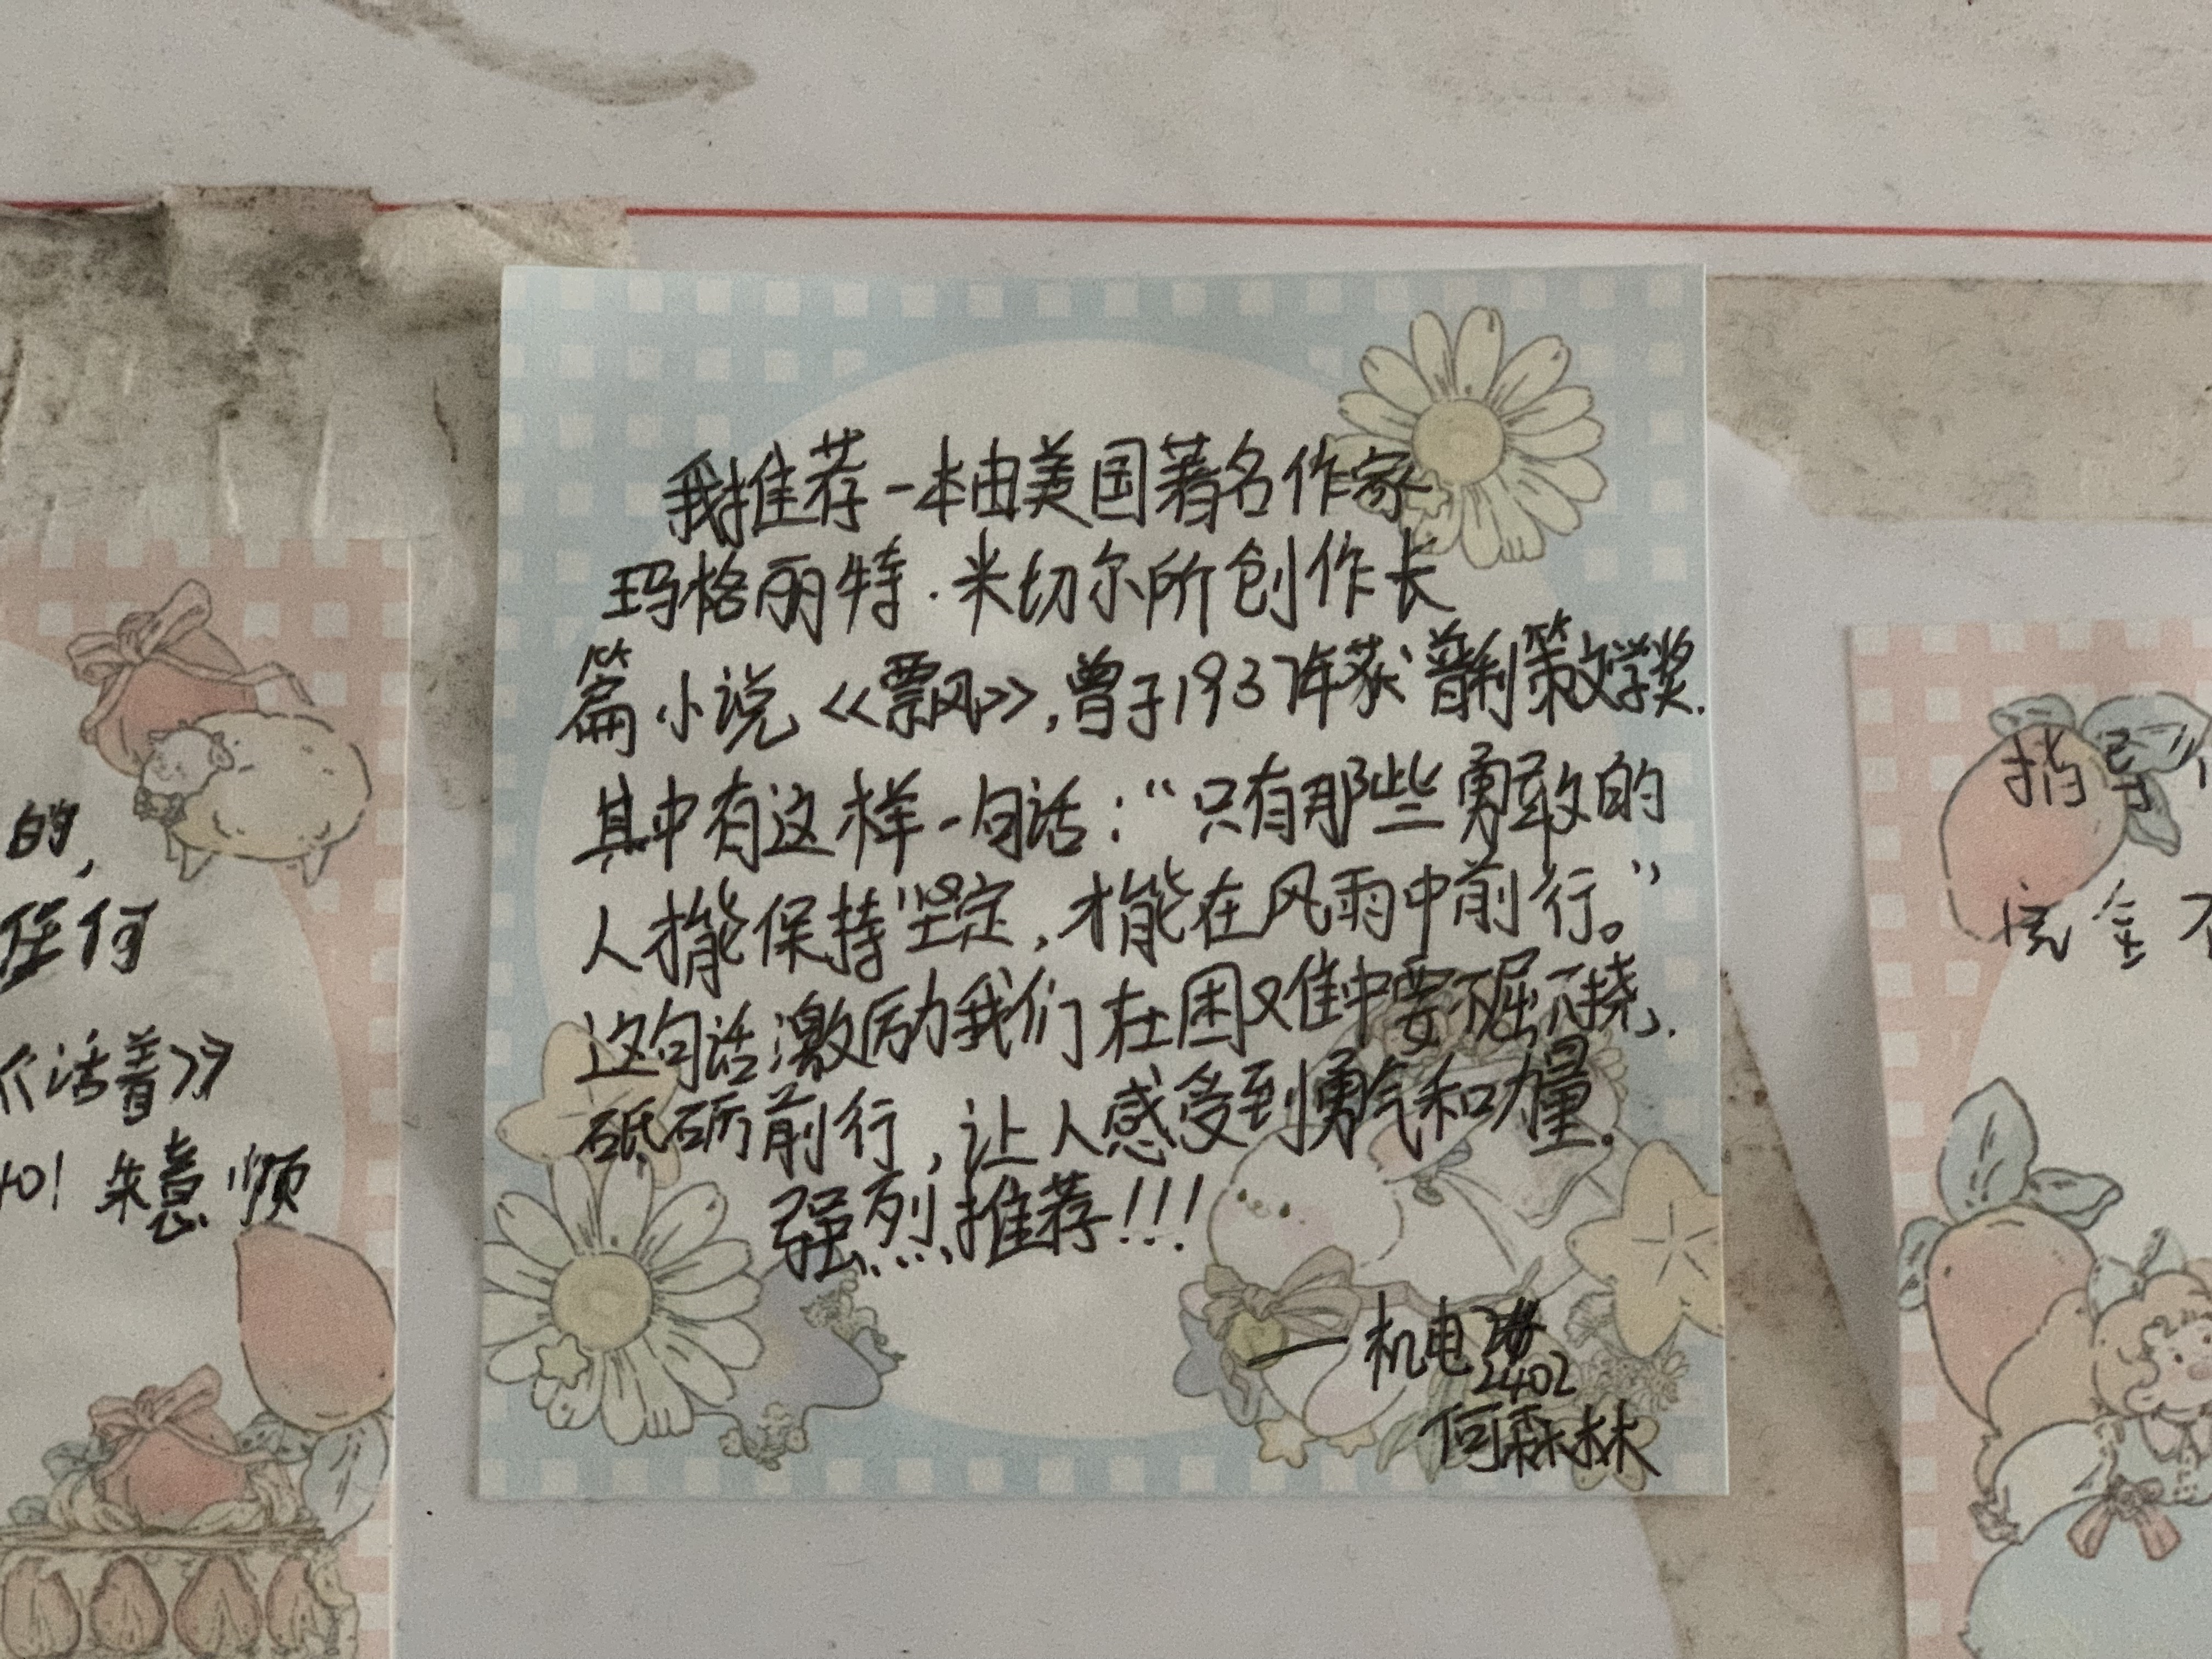 我推荐一本由美国著名作家
玛格丽特·米切尔所创作长
篇小说《飘风》,曾于1937年获普利策文学奖.
其中有这样一句话:“只有那些勇敢的
人才能保持坚定,才能在风雨中前行。”
这句话激励我们在困难中要不屈不挠.
砥砺前行,让人感受到勇气和力量.
强烈推荐!!!
一机电
2402
何霖林
的,
任何
《活着》
401 朱意烦
捎号
完全不